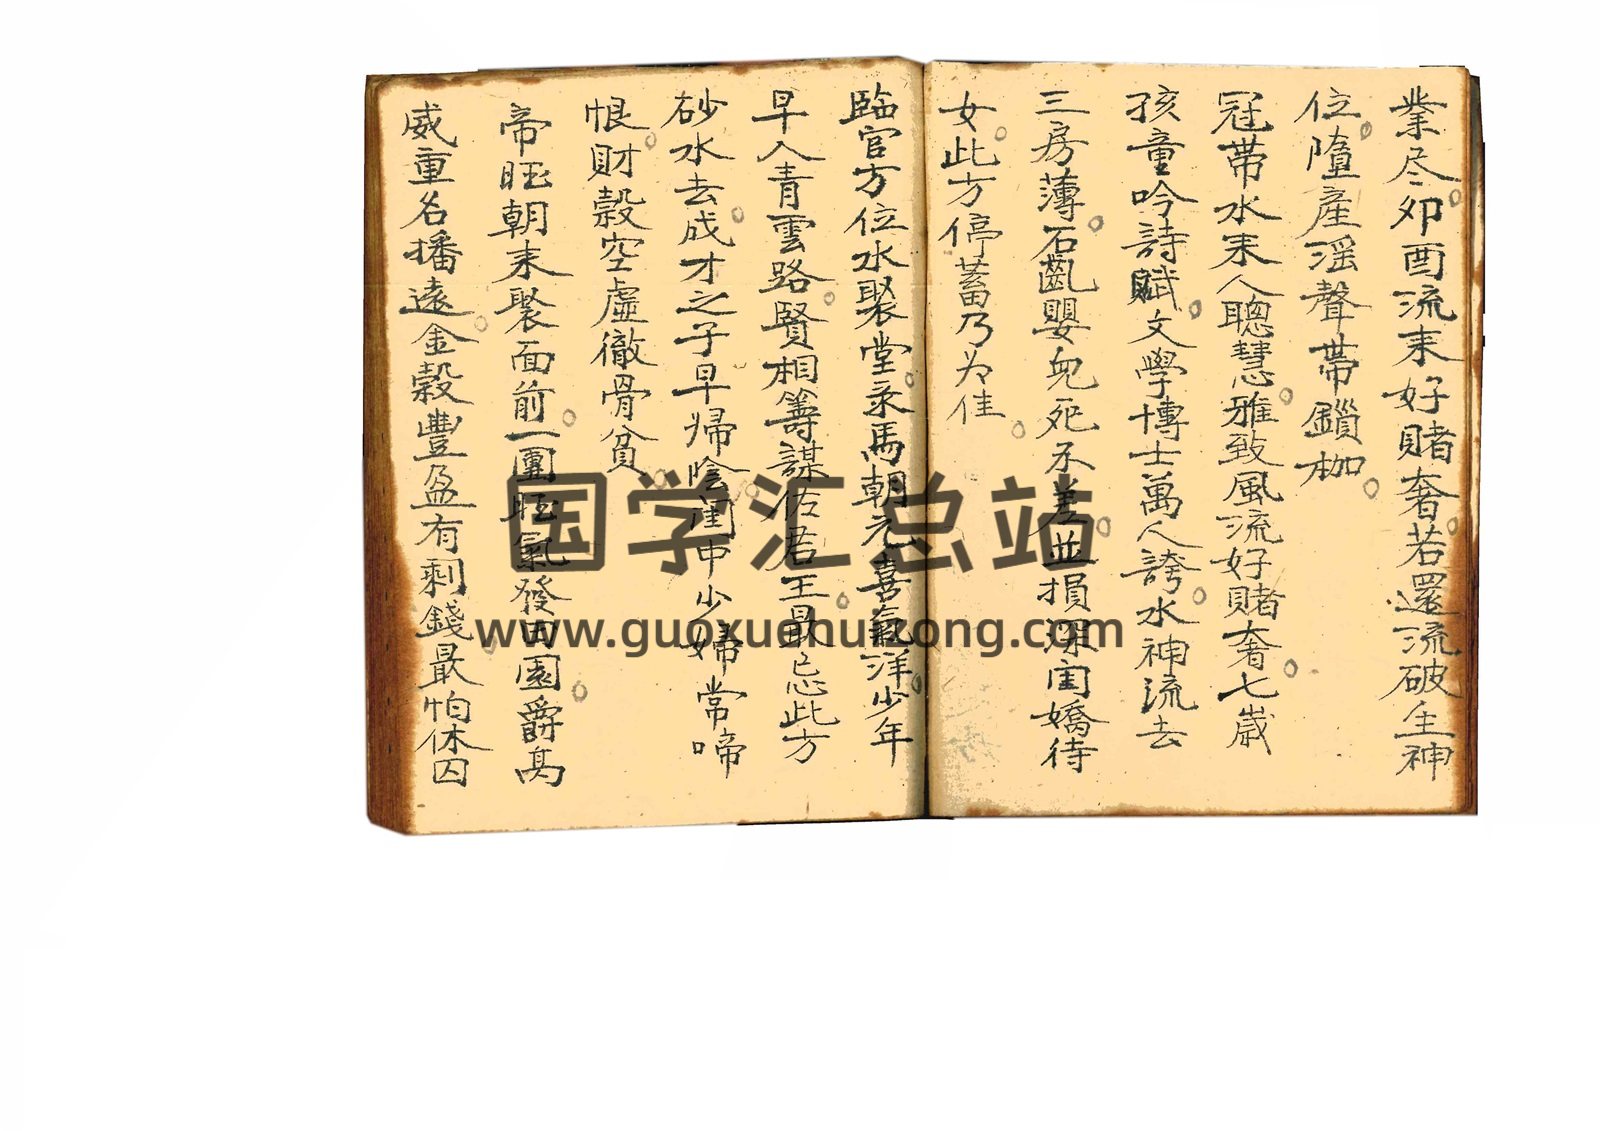 業尽卯酉流来好賭奢若還流破生神
位墮產滛聲帶鎖枷
冠带水来人聰慧雅致風流好賭奢七歲
孩童吟詩賦文學博士萬人誇水神流去
三房薄石齓嬰兒死不差並損深闺嬌待
女此方停蓄乃为佳
臨官方位水聚堂录馬朝元喜氣洋少年
早入青雲路賢相籌謀佐君王最忌此方
砂水去成才之子早帰陰閨中少婦常啼
恨財穀空虛徹骨貧
帝旺朝来聚面前一團旺氣發田園爵高
威重名播遠金穀豐盈有剩錢最怕休囚
国学汇总站
www.guoxuehuizong.com